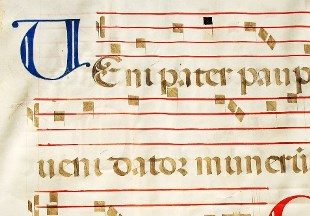 VEni pater paup
ueni dator munerū